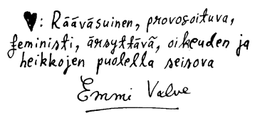 ♥: Rääväsuinen, provosoituva,
feministi, ärsyttävä, oikeuden ja
heikkojen puolella seisova
Emmi Valve